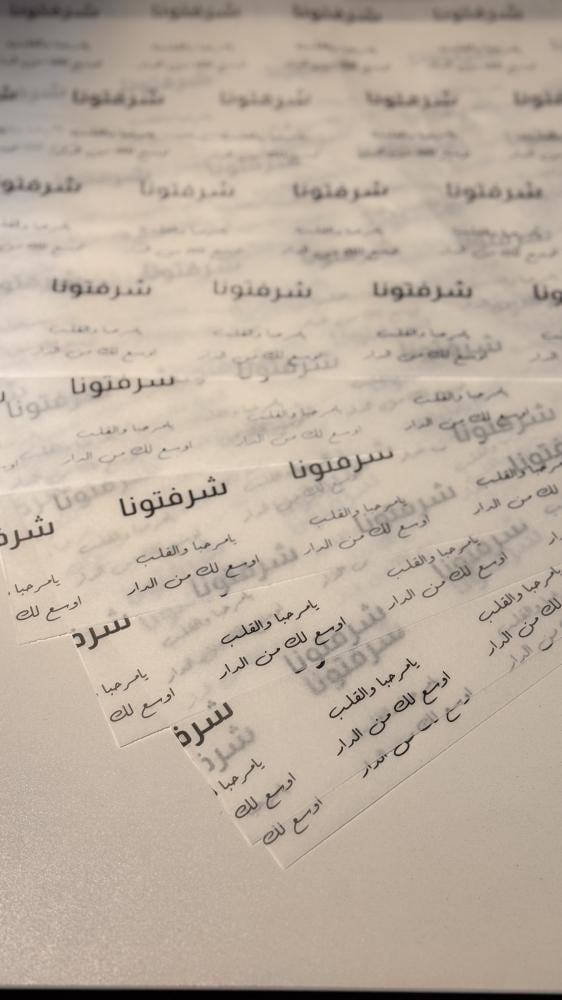 شرفتونا
يامرحبا والقلب
اوسع لك من الدار